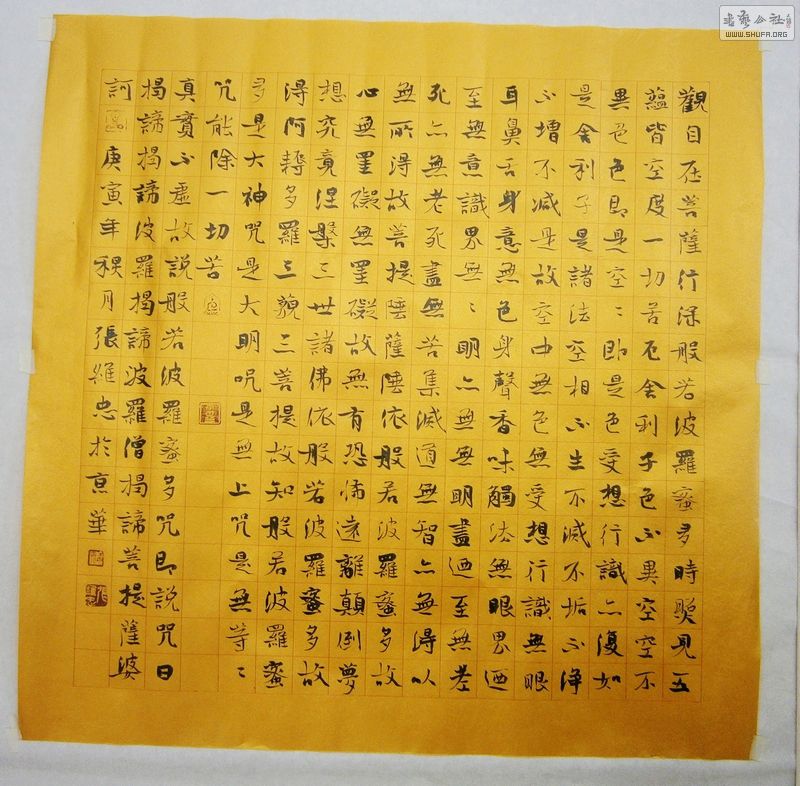 觀自在菩薩行深般若波羅蜜多時照見五
蘊皆空度一切苦厄舍利子色不異空空不
異色色即是空〻即是色受想行識亦復如
是舍利子是諸法空相不生不滅不垢不淨
不增不減是故空中無色無受想行識無眼
耳鼻舌身意無色身聲香味觸法無眼界迺
至無意識界無〻明亦無無明盡迺至無老
死亦無老死盡無苦集滅道無智亦無得以
無所得故菩提埵薩埵依般若波羅蜜多故
心無罣礙無罣礙故無有恐怖遠離顛倒夢
想究竟涅槃三世諸佛依般若波羅蜜多故
得阿耨多羅三藐三菩提故知般若波羅蜜
多是大神咒是大明咒是無上咒是無等〻
咒能除一切苦
真實不虛故說般若波羅蜜多咒即說咒曰
揭諦揭諦波羅揭諦波羅僧揭諦菩提薩婆
訶 庚寅年秋月張維忠於京華
書藝公社
WWW.SHUFA.ORG